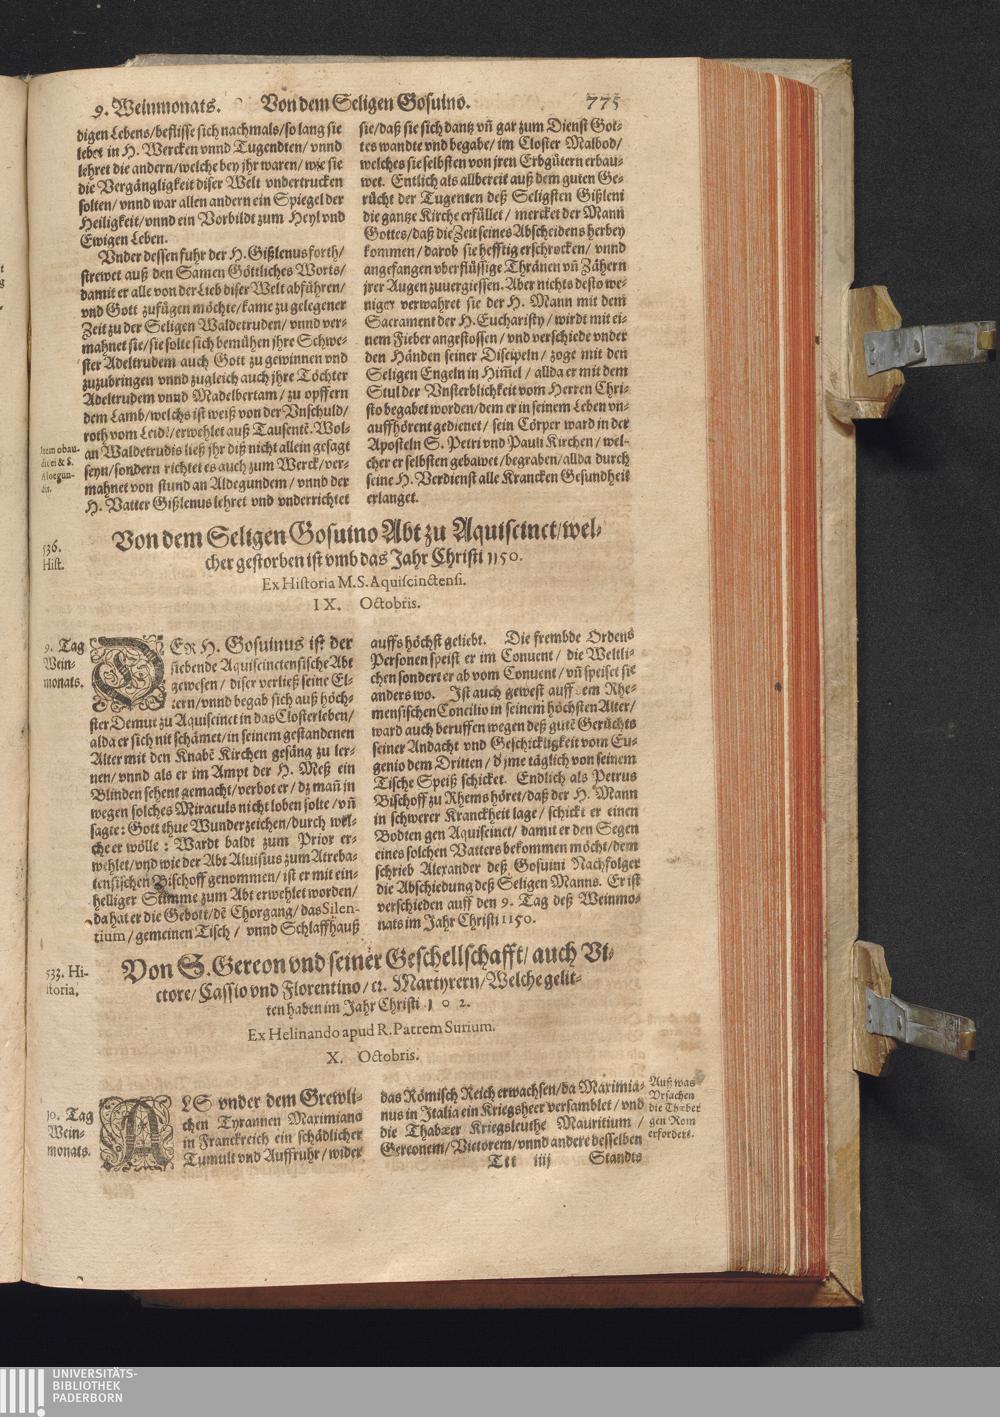 9. Weinmonats. Von dem Seligen Gosuino. 775
digen Lebens/ beflisse sich nachmals/ so lang sie
lebet in H. Wercken vnnd Tugendten/ vnnd
lehret die andern/ welche bey jhr waren/ wie sie
die Vergängligkeit diser Welt vndertrucken
solten/ vnnd war allen andern ein Spiegel der
Heiligkeit/ vnnd ein Vorbildt zum Heyl vnd
Ewigen Leben.
Vnder dessen fuhr der H. Gißlenus forth/
strewet auß den Samen Göttliches Worts/
damit er alle von der Lieb diser Welt abführen/
vnd Gott zufügen möchte/ kame zu gelegener
Zeit zu der Seligen Waldetruden/ vnnd ver-
mahnet sie/ sie solte sich bemühen jhre Schwe-
ster Adeltrudem auch Gott zu gewinnen vnd
zuzubringen vnnd zugleich auch jhre Töchter
Adeltrudem vnnd Madelbertam/ zu opffern
dem Lamb/ welchs ist weiß von der Vnschuld/
roth vom Leid/ erwehlet auß Tausentē. Wol-
an Waldetrudis ließ jhr diß nicht allein gesagt
seyn/ sondern richtet es auch zum Werck/ ver-
mahnet von stund an Aldegundem/ vnnd der
H. Vatter Gißlenus lehret vnd vnderrichtet
Item obau-
dit ei & S.
Aloegun-
dis.
sie/ daß sie sich dantz vñ gar zum Dienst Got-
tes wandte vnd begabe/ im Closter Malbod/
welches sie selbsten von jren Erbgütern erbau-
wet. Entlich als allbereit auß dem guten Ge-
rücht der Tugenten deß Seligsten Gißleni
die gantze Kirche erfüllet/ mercket der Mann
Gottes/ daß die Zeit seines Abscheidens herbey
kommen/ darob sie hefftig erschrocken/ vnnd
angefangen vberflüssige Thränen vñ Zähern
jrer Augen zuuergiessen. Aber nichts desto we-
niger verwahret sie der H. Mann mit dem
Sacrament der H. Eucharisty/ wirdt mit ei-
nem Fieber angestossen/ vnd verschiede vnder
den Händen seiner Discipeln/ zoge mit den
Seligen Engeln in Him̃el/ allda er mit dem
Stul der Vnsterblichkeit vom Herren Chri-
sto begabet worden/ dem er in seinem Leben vn-
auffhörent gedienet/ sein Cörper ward in der
Aposteln S. Petri vnd Pauli Kirchen/ wel-
cher er selbsten gebawet/ begraben/ allda durch
seine H. Verdienst alle Krancken Gesundheit
erlanget.
536.
Hist.
Von dem Seligen Gosuino Abt zu Aquiscinct/ wel-
cher gestorben ist vmb das Jahr Christi 1150.
Ex Historia M. S. Aquiscinctensi.
IX. Octobris.
9. Tag
Wein-
monats.
DER H. Gosuinus ist der
siebende Aquiscinctensische Abt
gewesen/ diser verließ seine El-
tern/ vnnd begab sich auß höch-
ster Demut zu Aquiscinct in das Closterleben/
alda er sich nit schämet/ in seinem gestandenen
Alter mit den Knabē Kirchen gesäng zu ler-
nen/ vnnd als er im Ampt der H. Meß ein
Blinden sehent gemacht/ verbot er/ dz mañ in
wegen solches Miraculs nicht loben solte/ vñ
sagte: Gott thue Wunderzeichen/ durch wel-
che er wölle: Wardt baldt zum Prior er-
wehlet/ vnd wie der Abt Aluisius zum Atreba-
tensischen Bischoff genommen/ ist er mit ein-
helliger Stimme zum Abt erwehlet worden/
da hat er die Gebott/ dē Chorgang/ das Silen-
tium/ gemeinen Tisch/ vnnd Schlaffhauß
auffs höchst geliebt. Die frembde Ordens
Personen speist er im Conuent/ die Weltli-
chen sondert er ab vom Conuent/ vñ speiset sie
anderswo. Ist auch gewest auff em Rhe-
mensischen Concilio in seinem höchsten Alter/
ward auch beruffen wegen deß gutē Gerüchts
seiner Andacht vnd Geschickligkeit vom Eu-
genio dem Dritten/ d'jme täglich von seinem
Tische Speiß schicket. Endlich als Petrus
Bischoff zu Rhems höret/ daß der H. Mann
in schwerer Kranckheit lage/ schickt er einen
Bodten gen Aquiscinct/ damit er den Segen
eines solchen Vatters bekommen möcht/ dem
schrieb Alexander deß Gosuini Nachfolger
die Abschiedung deß Seligen Manns. Er ist
verschieden auff den 9. Tag deß Weinmo-
nats im Jahr Christi 1150.
533. Hi-
storia.
Von S. Gereon vnd seiner Geschellschafft/ auch Vi-
ctore/ Cassio vnd Florentino/ ꝛc. Martyrern/ Welche gelit-
ten haben im Jahr Christi 102.
Ex Helinando apud R. Patrem Surium.
X. Octobris.
10. Tag
Wein-
monats.
ALS vnder dem Grewli-
chen Tyrannen Maximiano
in Franckreich ein schädlicher
Tumult vnd Auffruhr/ wider
das Römisch Reich erwachsen/ da Maximia-
nus in Italia ein Kriegsheer versamblet/ vnd
die Thabæer Kriegsleuthe Mauritium/
Gereonem/ Victorem/ vnnd andere desselben
Auß was
Vrsachen
die Thæber
gen Rom
erfordert.
Ttt iiij Standts
UNIVERSITÄTS-
BIBLIOTHEK
PADERBORN